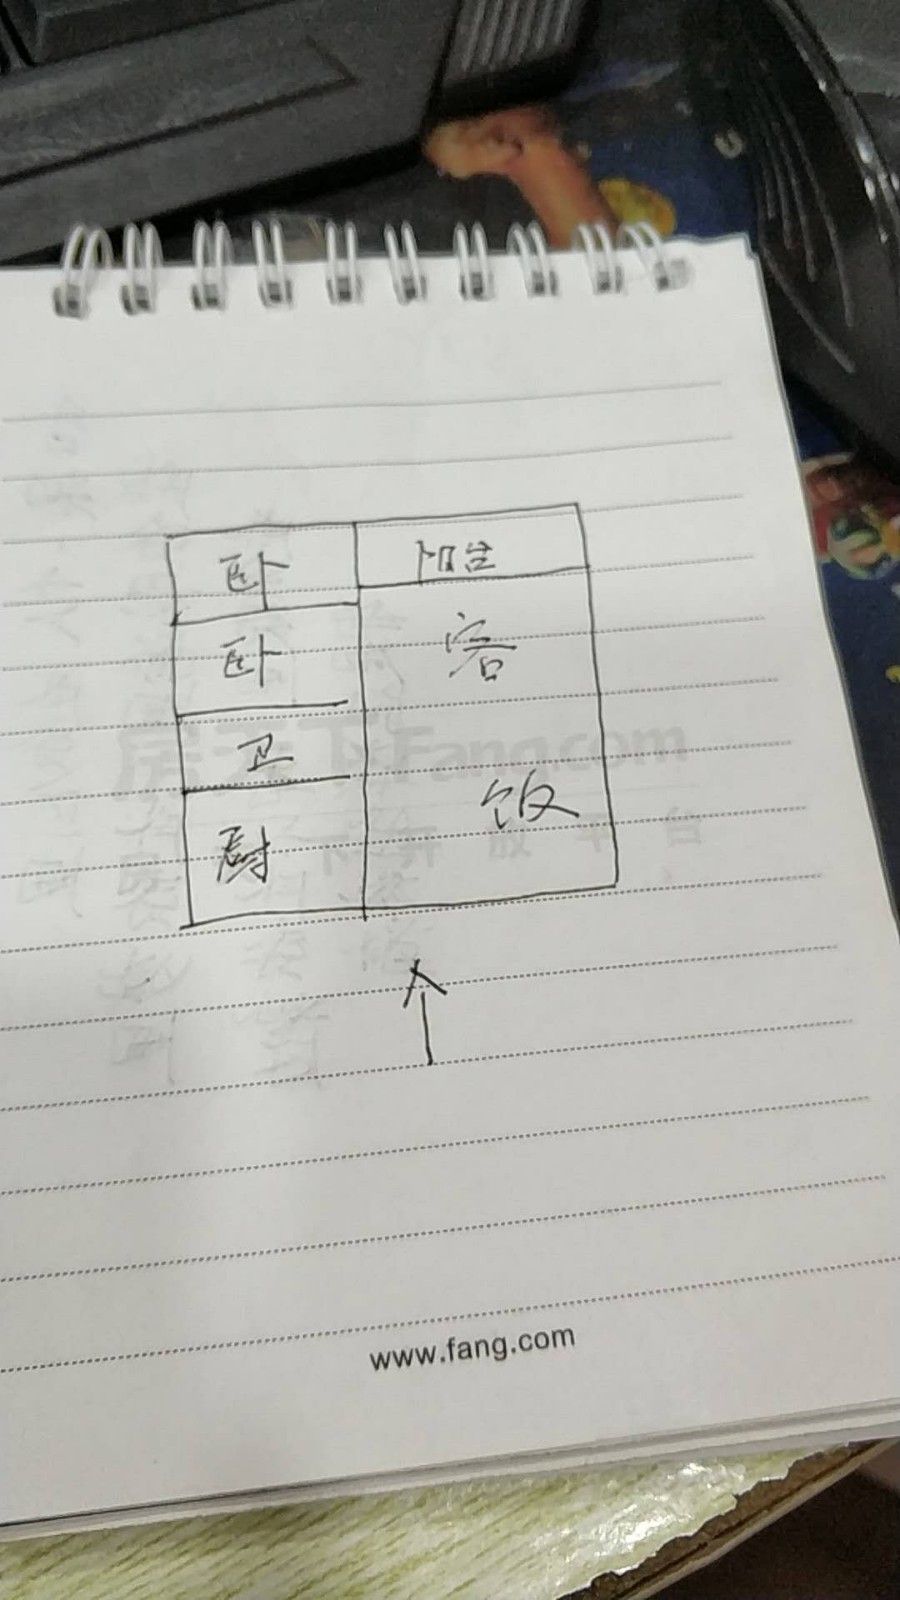 卧 阳台
卧 客
卫
房天下 Fang.com
饭
厨
www.fang.com